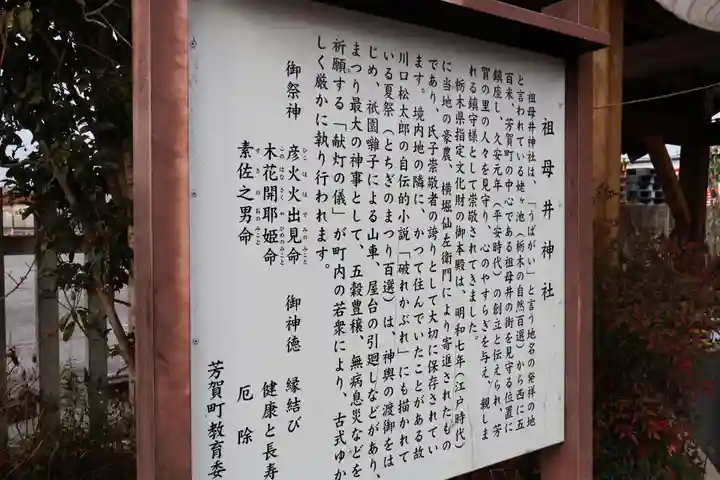 祖母井神社
祖母井神社は、「うばがい」と言う地名の発祥の地
と言われている姥ヶ池（栃木の自然百選）から西に五
百米、芳賀町の中心である祖母井の街を見守る位置に
鎮座し、久安元年（平安時代）の創立と伝えられ、芳
賀の里の人々を見守り、心のやすらぎを与え、親しま
れる鎮守様として崇敬されてきました。
栃木県指定文化財の御本殿は、明和七年（江戸時代）
に当地の豪農、横堀仙左衛門により寄進されたもの
であり、氏子崇敬者の誇りとして大切に保存されてい
ます。境内地の隣に、かつて住んでいたことがある故
川口松太郎の自伝的小説「破れかぶれ」にも描かれて
いる夏祭（とちぎのまつり百選）は、神輿の渡御をは
じめ、祇園囃子による山車、屋台の引廻しなどがあり、
まつり最大の神事として、五穀豊穣、無病息災などを
祈願する「献灯の儀」が町内の若衆により、古式ゆか
しく厳かに執り行われます。
御祭神 彦火火出見命 御神徳 縁結び
ひこほほでみのみこと
木花開耶姫命 健康と長寿
このはなさくやひめのみこと
素佐之男命 厄除
すさのおのみこと
芳賀町教育委